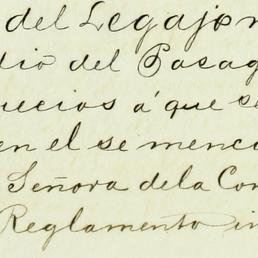 del Legajo n
dio del Pasag
recios á que se
en el se menci
Señora dela Con
Reglamento in